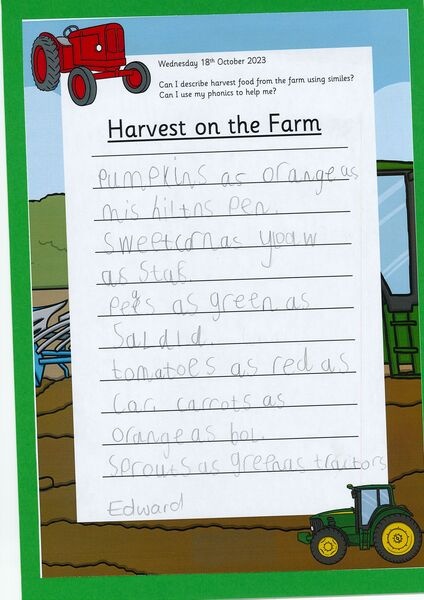 Wednesday 18th October 2023
Can I describe harvest food from the farm using similes?
Can I use my phonics to help me?
Harvest on the Farm
Pumpkins as orange as
mis hiltns Pen.
Sweetcorn as yoaw
as Stas
Peas as green as
Saldid.
tomatoes as red as
Car. carrots as
orange as bol.
Sprouts as green as tractors
Edward